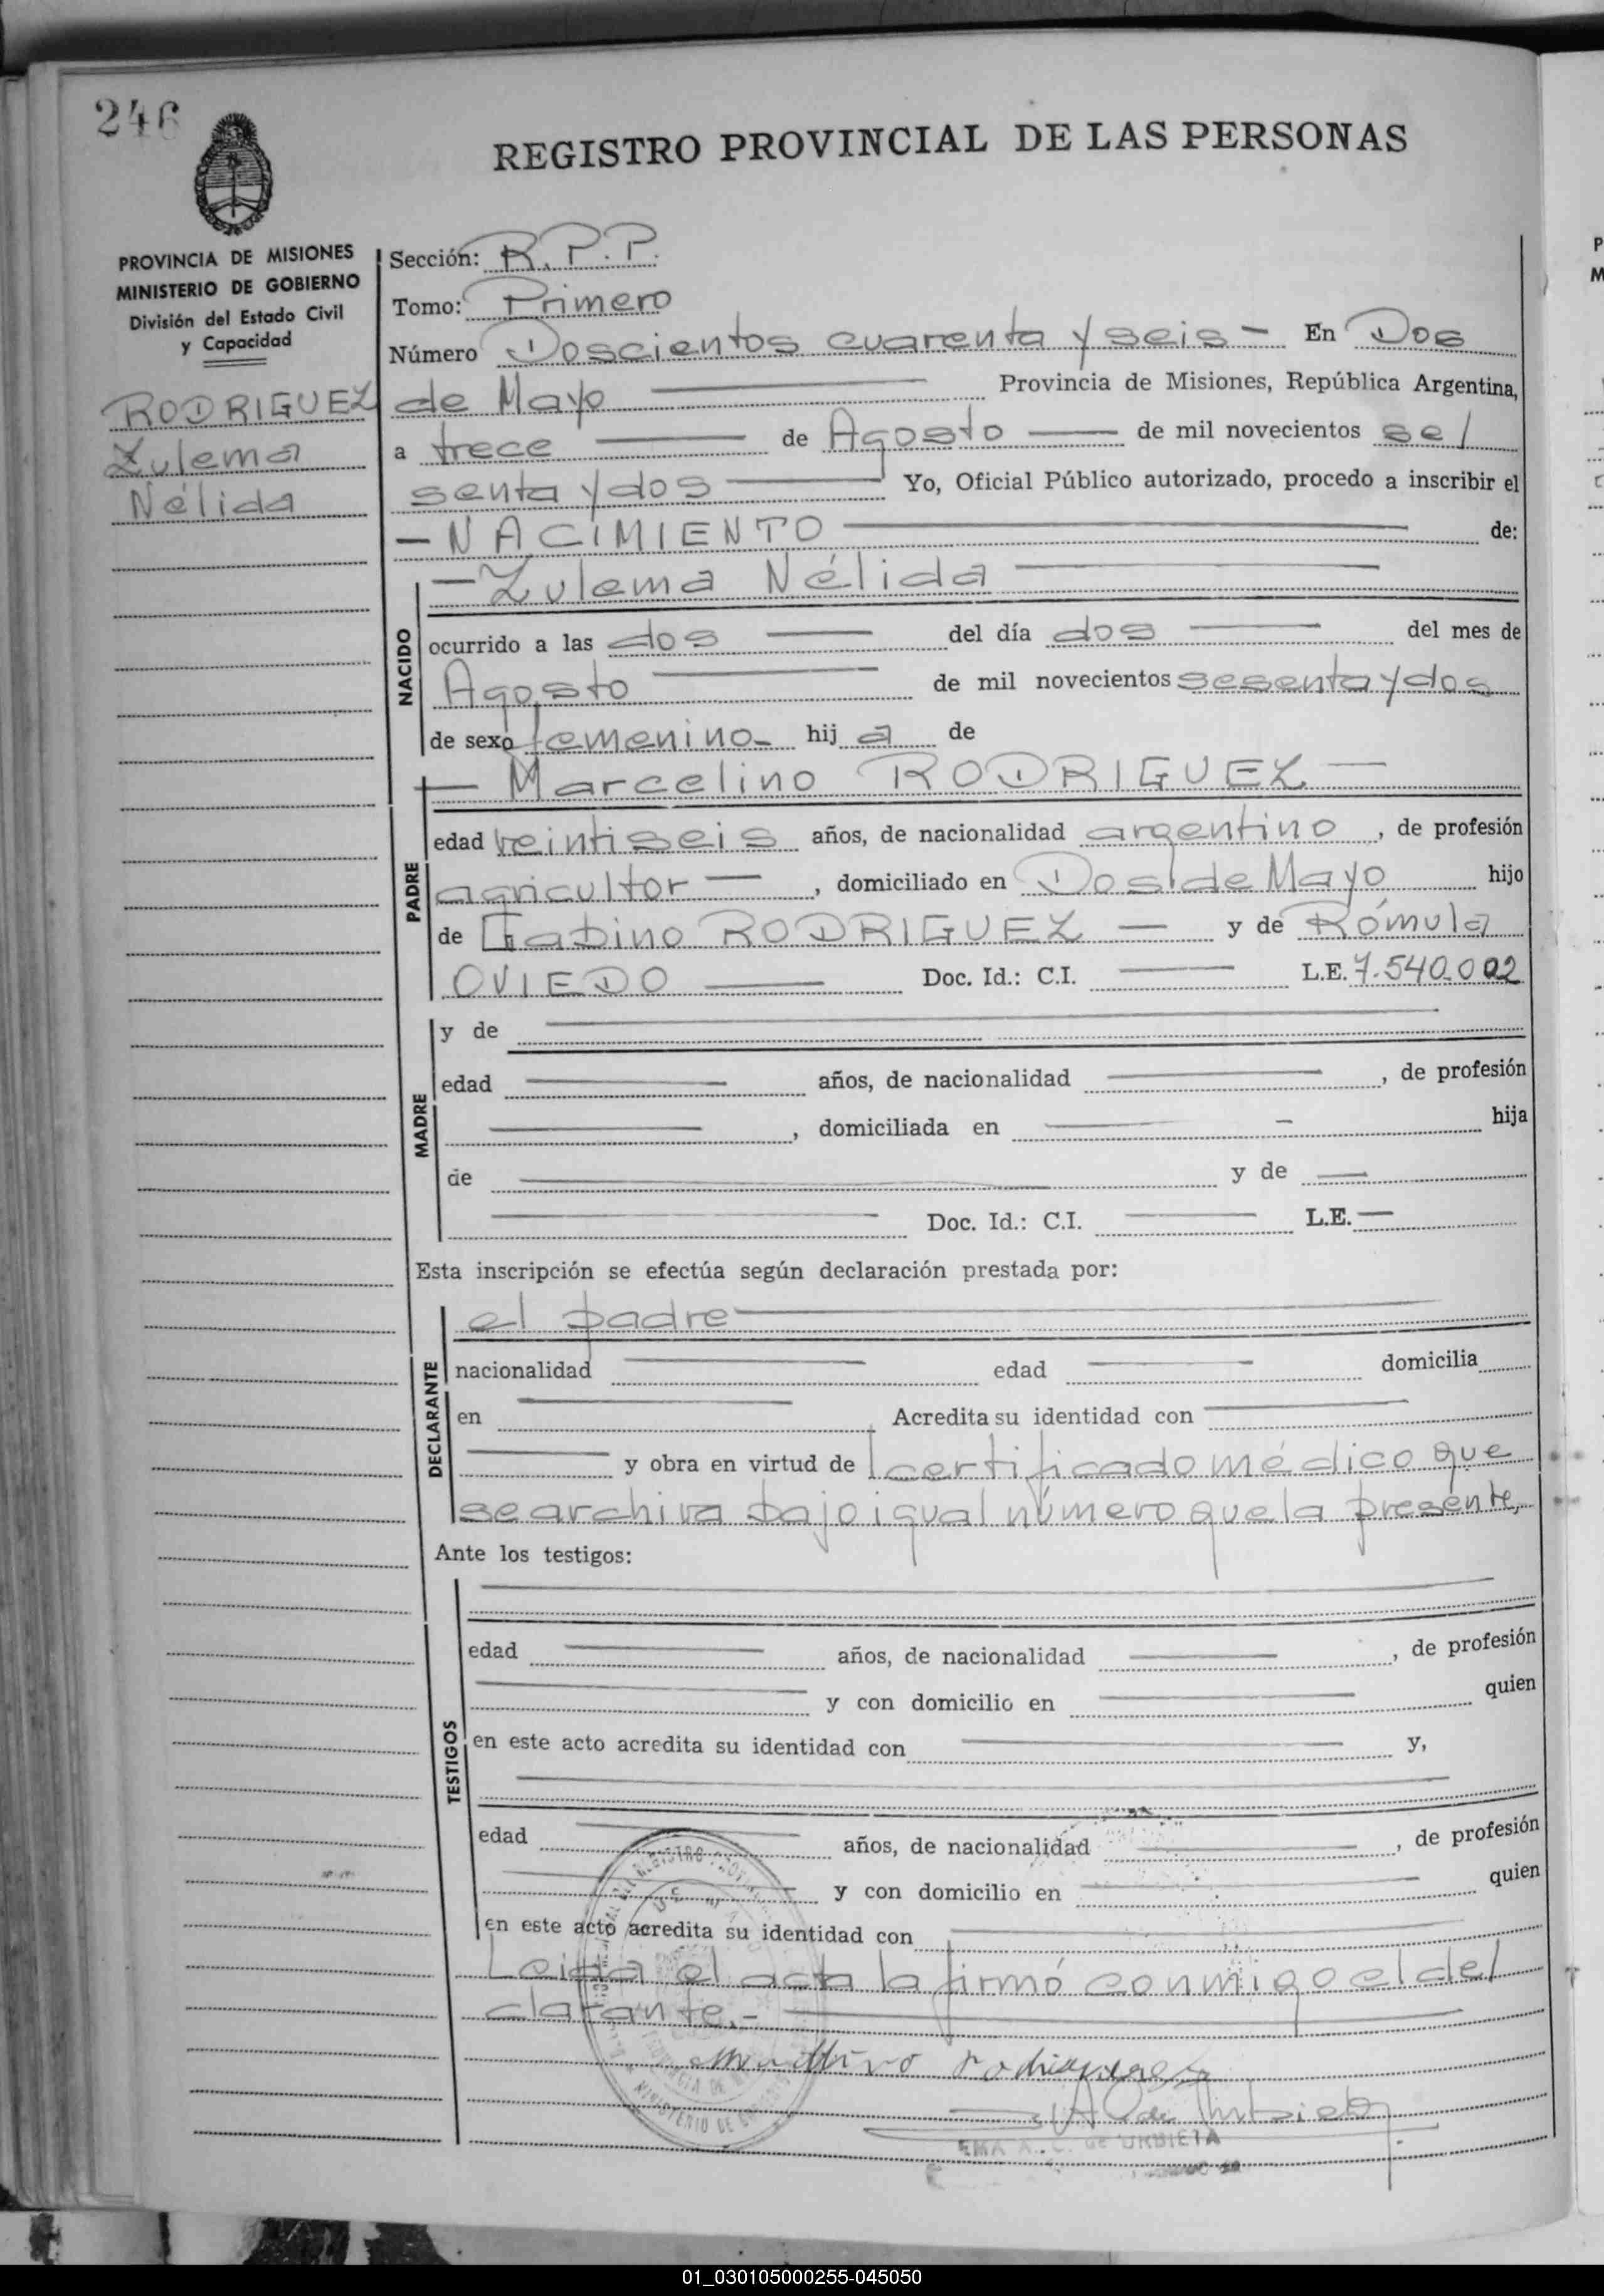 246
REGISTRO PROVINCIAL DE LAS PERSONAS
PROVINCIA DE MISIONES
MINISTERIO DE GOBIERNO
División del Estado Civil
y Capacidad
RODRIGUEZ
Zulema
Nélida
Sección: R.P.P.
Tomo: Primero
Número Doscientos cuarenta y seis - En Dos
de Mayo Provincia de Misiones, República Argentina,
a trece de Agosto de mil novecientos se/
senta y dos Yo, Oficial Público autorizado, procedo a inscribir el
- NACIMIENTO de:
NACIDO
- Zulema Nélida
ocurrido a las dos del día dos del mes de
Agosto de mil novecientos sesenta y dos
de sexo femenino- hij a de
PADRE
- Marcelino RODRIGUEZ -
edad veintiseis años, de nacionalidad argentino, de profesión
agricultor -, domiciliado en Dos/de Mayo hijo
de Gabino RODRIGUEZ - y de Rómula
OVIEDO Doc. Id.: C.I. L.E. 7.540.002
MADRE
y de
edad años, de nacionalidad , de profesión
, domiciliada en hija
de y de
Doc. Id.: C.I. L.E.
Esta inscripción se efectúa según declaración prestada por:
DECLARANTE
el padre
nacionalidad edad domicilia
en Acredita su identidad con
y obra en virtud de certificado médico que
se archiva bajo igual número que la presente,
Ante los testigos:
TESTIGOS
edad años, de nacionalidad , de profesión
y con domicilio en quien
en este acto acredita su identidad con y,
edad años, de nacionalidad , de profesión
y con domicilio en quien
en este acto acredita su identidad con
Leida el acta la firmó conmigo el de/
clarante.-
rodriguez
de Urbieta
EMA A. C. de URBIETA
MINISTERIO DE
01_030105000255-045050